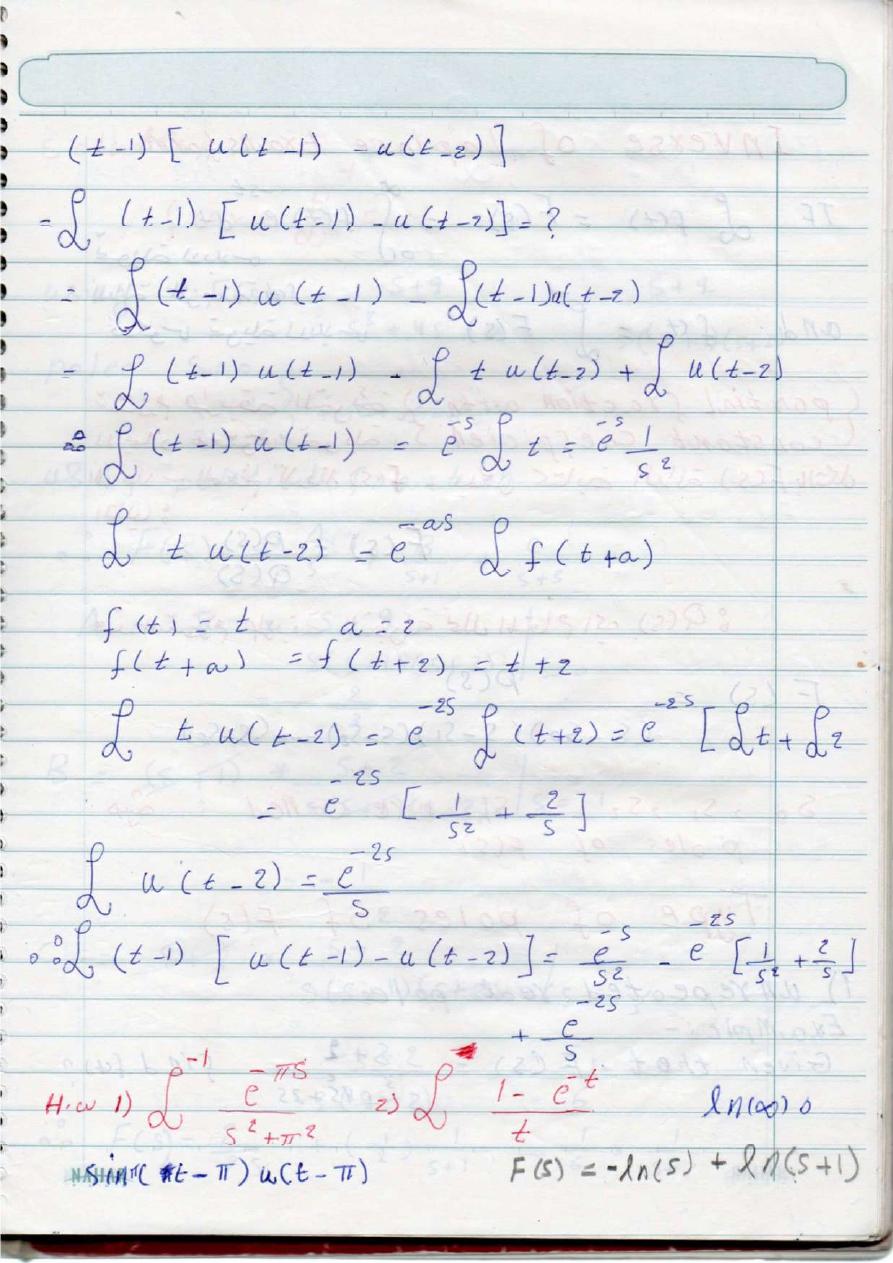 (t-1) [ u(t-1) - u(t-2) ]
= ℒ (t-1) [ u(t-1) - u(t-2)] = ?
= ℒ (t-1) u(t-1) - ℒ (t-1)u(t-2)
= ℒ (t-1) u(t-1) - ℒ t u(t-2) + ℒ u(t-2)
∴ ℒ (t-1) u(t-1) = e^{-s} ℒ t = e^{-s} 1/s^2
ℒ t u(t-2) = e^{-as} ℒ f(t+a)
f(t) = t a = 2
f(t+a) = f(t+2) = t+2
ℒ t u(t-2) = e^{-2s} ℒ (t+2) = e^{-2s} [ℒ t + ℒ 2
= e^{-2s} [ 1/s^2 + 2/s ]
ℒ u(t-2) = e^{-2s}/s
∴ ℒ (t-1) [ u(t-1) - u(t-2) ] = e^{-s}/s^2 - e^{-2s} [1/s^2 + 2/s]
+ e^{-2s}/s
H.w 1) ℒ^{-1} e^{-πs}/(s^2+π^2) 2) ℒ (1-e^{-t})/t ln(∞) 0
sin π(t-π) u(t-π) F(s) = -ln(s) + ln(s+1)